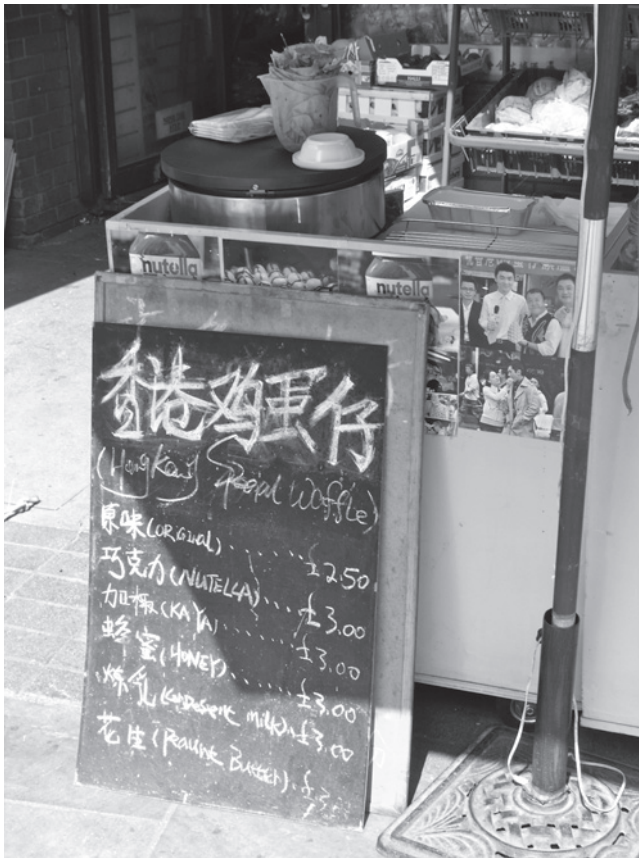 nutella
nutella
香港鸡蛋仔
(Hong Kong Special Waffle)
原味(ORGINAL)........£2.50
巧克力(NUTELLA)....£3.00
加椰(KAYA)........£3.00
蜂蜜(HONEY)......£3.00
炼乳(Condesent milk)..£3.00
花生(Peanut Butter).£3.